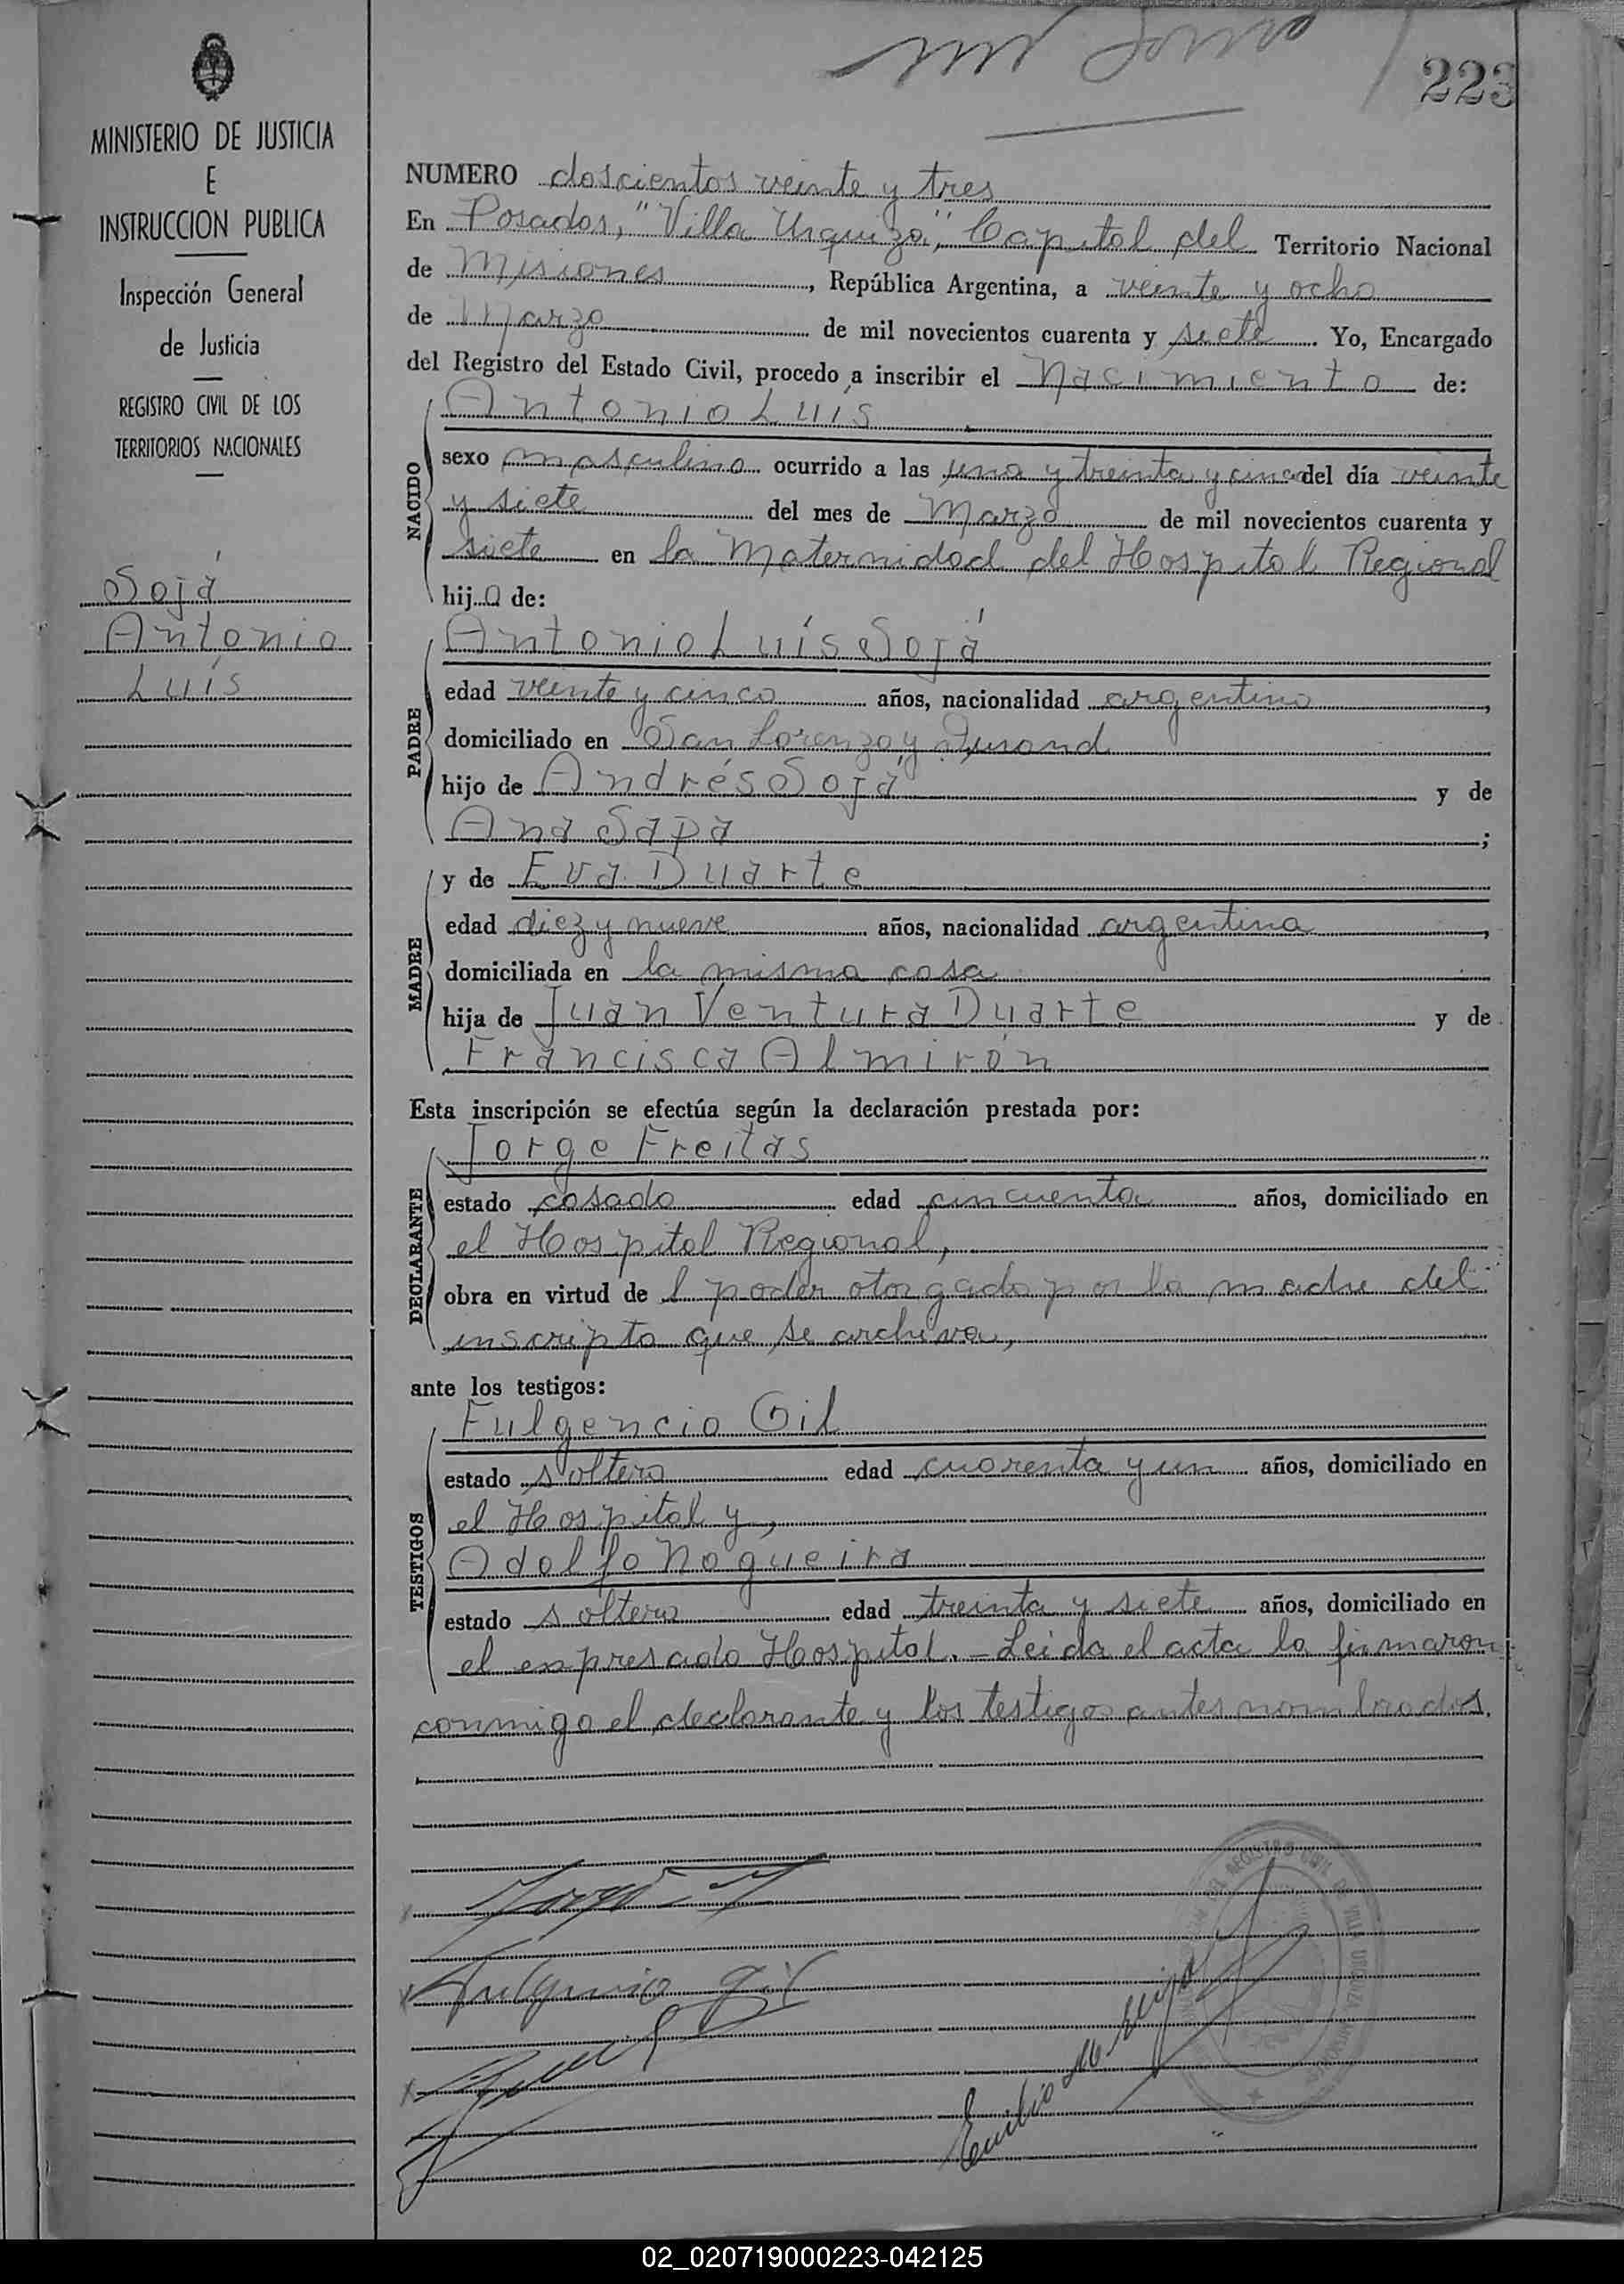 223
MINISTERIO DE JUSTICIA
E
INSTRUCCION PUBLICA
Inspección General
de Justicia
REGISTRO CIVIL DE LOS
TERRITORIOS NACIONALES
Sojá
Antonio
Luís
NUMERO doscientos veinte y tres
En Posadas, "Villa Urquiza", Capital del Territorio Nacional
de Misiones, República Argentina, a veinte y ocho
de Marzo de mil novecientos cuarenta y siete. Yo, Encargado
del Registro del Estado Civil, procedo a inscribir el Nacimiento de:
NACIDO
Antonio Luís
sexo masculino ocurrido a las una y treinta y cinco del día veinte
y siete del mes de Marzo de mil novecientos cuarenta y
siete en la Maternidad del Hospital Regional
hijo de:
PADRE
Antonio Luís Sojá
edad veinte y cinco años, nacionalidad argentino,
domiciliado en San Lorenzo y
hijo de Andrés Sojá y de
Ana Sapa;
MADRE
y de Eva Duarte
edad diez y nueve años, nacionalidad argentina,
domiciliada en la misma casa
hija de Juan Ventura Duarte y de
Francisca Almirón
Esta inscripción se efectúa según la declaración prestada por:
DECLARANTE
Jorge Freitas
estado casado edad cincuenta años, domiciliado en
el Hospital Regional,
obra en virtud de l poder otorgado por la madre del
inscripto que se archiva,
ante los testigos:
TESTIGOS
Fulgencio Gil
estado soltero edad cuarenta y un años, domiciliado en
el Hospital y,
Adolfo Nogueira
estado soltero edad treinta y siete años, domiciliado en
el expresado Hospital. - Leida el acta la firmaron
conmigo el declarante y los testigos antes nombrados.
Fulgencio Gil
Emilio
02_020719000223-042125